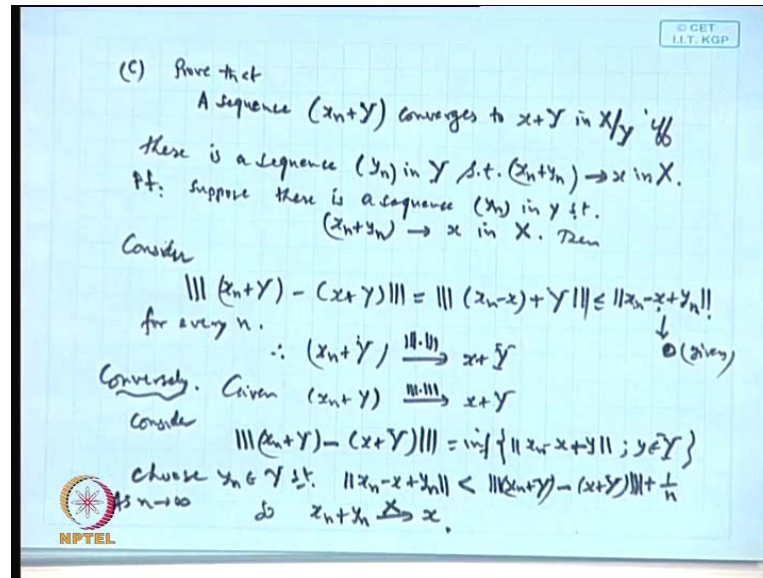 © CET
I.I.T. KGP
(C) Prove that
A sequence (xn+Y) converges to x+Y in X/Y iff
there is a sequence (yn) in Y s.t. (xn+yn) → x in X.
Pf: Suppose there is a sequence (yn) in Y s.t.
(xn+yn) → x in X. Then
Consider
|||(xn+Y) - (x+Y)||| = |||(xn-x)+Y||| ≤ ||xn-x+yn||
for every n. ↓
∴ (xn+Y) —|||.|||→ x+Y 0 (given)
Conversely. Given (xn+Y) —|||.|||→ x+Y
Consider
|||(xn+Y) - (x+Y)||| = inf{||xn-x+y||; y∈Y}
choose yn ∈ Y s.t. ||xn-x+yn|| < |||(xn+Y) - (x+Y)||| + 1/n
As n→∞ so xn+yn —X→ x.
NPTEL